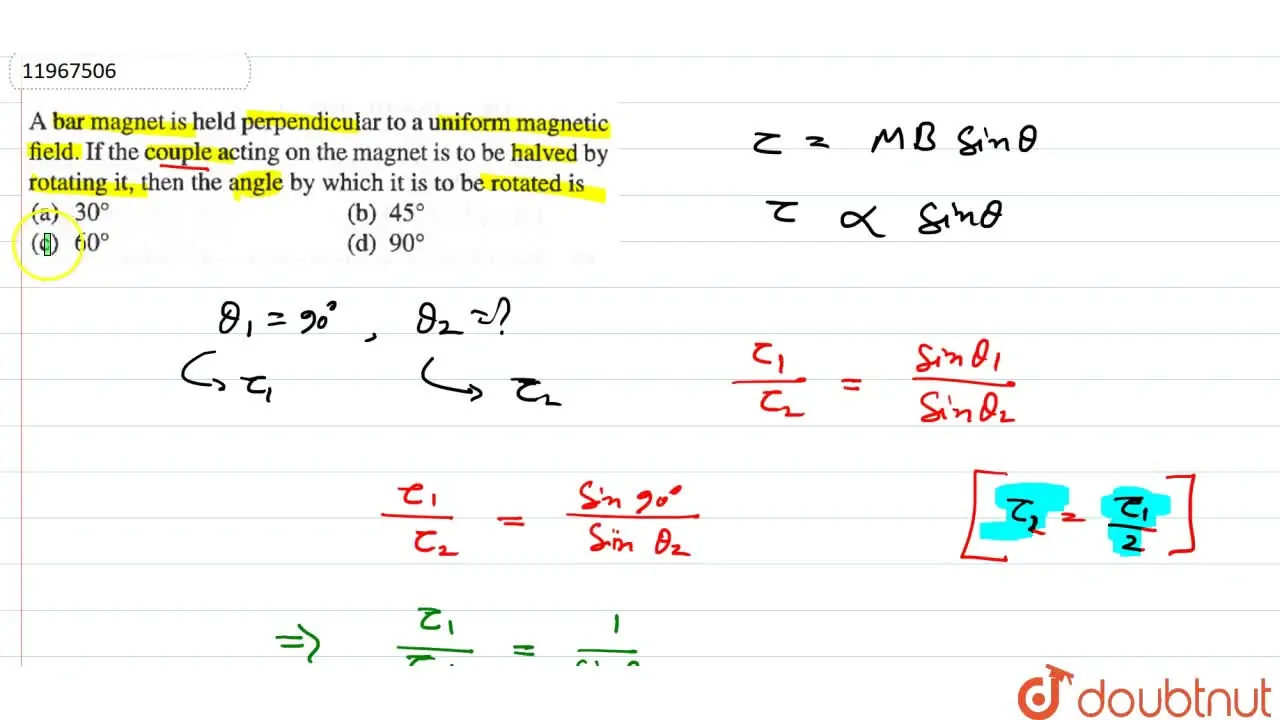 11967506
A bar magnet is held perpendicular to a uniform magnetic
field. If the couple acting on the magnet is to be halved by
rotating it, then the angle by which it is to be rotated is
(a) 30° (b) 45°
(c) 60° (d) 90°
τ = MB Sinθ
τ ∝ Sinθ
θ₁ = 90°, θ₂ = ?
τ₁ τ₂
τ₁/τ₂ = Sinθ₁/Sinθ₂
τ₁/τ₂ = Sin 90°/Sin θ₂
[τ₂ = τ₁/2]
⇒ τ₁ = 1
doubtnut